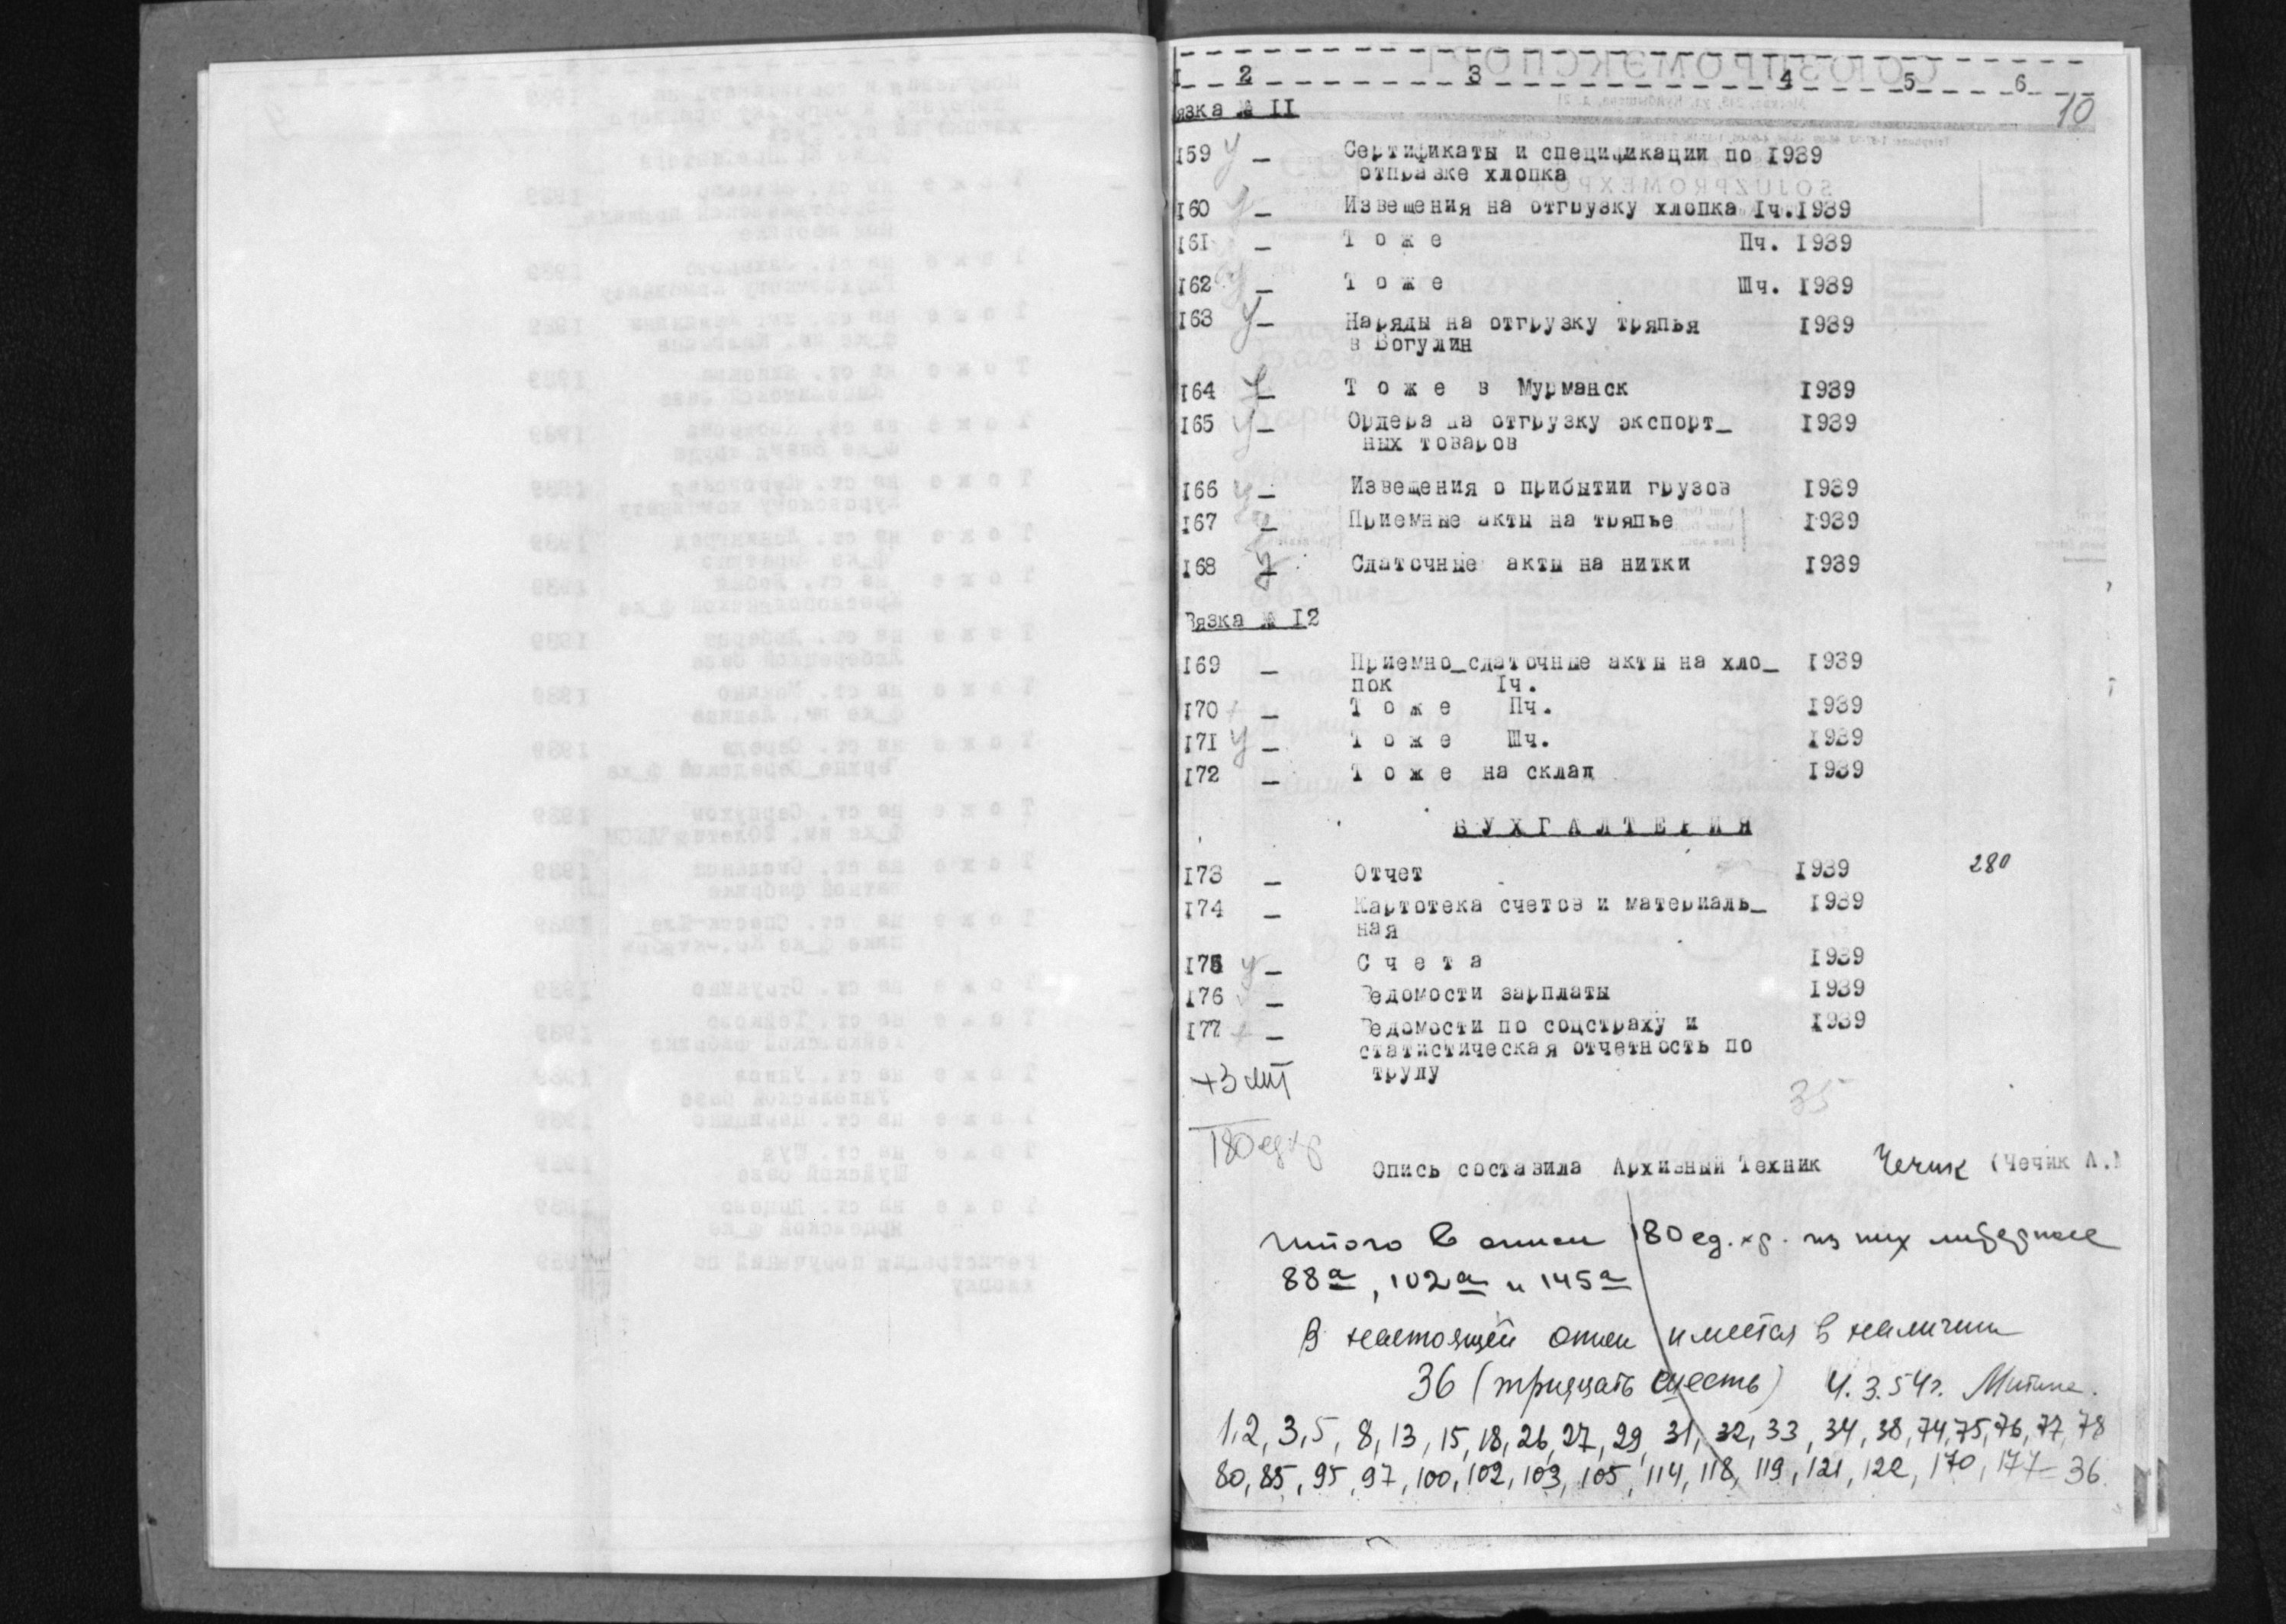 1 2 3 4 5 6
10
Вязка № II
I59 у _ Сертификаты и спецификации по I939
отправке хлопка
I60 у _ Извещения на отгрузку хлопка Iч. I939
I6I _ Т о ж е Пч. I939
I62 у _ Т о ж е Шч. I939
I63 у _ Наряды на отгрузку тряпья I939
в Богулин
I64 у _ Т о ж е в Мурманск I939
I65 у _ Ордера на отгрузку экспорт_ I939
ных товаров
I66 у _ Извещения о прибытии грузов I939
I67 у _ Приемные акты на тряпье I939
I68 у _ Сдаточные акты на нитки I939
Вязка № I2
I69 _ Приемно_сдаточные акты на хло_ I939
пок Iч.
I70 + _ Т о ж е Пч. I939
I7I у _ Т о ж е Шч. I939
I72 _ Т о ж е на склад I939
Б У Х Г А Л Т Е Р И Я
I73 _ Отчет I939 280
I74 _ Картотека счетов и материаль_ I939
ная
I75 у _ С ч е т а I939
I76 у _ Ведомости зарплаты I939
I77 + _ Ведомости по соцстраху и I939
статистическая отчетность по
труду
+3 лит
35
180 ед.хр
Опись составила Архивный Техник Чечик (Чечик А.
Итого в описи 180 ед. хр. из них литерные
88а, 102а и 145а
В настоящей описи имеется в наличии
36 (тридцать шесть) 4.3.54г. Митина.
1,2, 3,5, 8,13, 15,18,26,27,29, 31, 32, 33, 34, 38,74,75,76,77,78
80,85, 95,97,100,102,103,105,114,118,119,121,122,170,177=36.